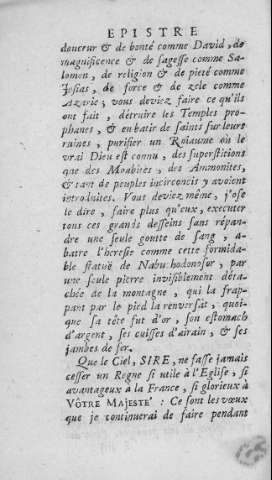 EPISTRE
douceur & de bonté comme David, de
magnificence & de sagesse comme Sa-
lomon, de religion & de pieté comme
Josias, de force & de zele comme
Azarie; vous deviez faire ce qu'ils
ont fait, détruire les Temples pro-
phanes, & en batir de saints sur leurs
raines, purifier un Roiaume où le
vrai Dieu est connu, des superstitions
que des Moabites, des Ammonites,
& tant de peuples incirconcis y avoient
introduites. Vous deviez même, j'ose
le dire, faire plus qu'eux, executer
tous ces grands desseins sans répan-
dre une seule goutte de sang, a-
batre l'heresie comme cette formida-
ble statuë de Nabuchodonosor, par
une seule pierre invisiblement déta-
chée de la montagne, qui la frap-
pant par le pied la renversât, quoi-
que sa tête fut d'or, son estomach
d'argent, ses cuisses d'airain, & ses
jambes de fer.
Que le Ciel, SIRE, ne fasse jamais
cesser un Regne si utile à l'Eglise, si
avantageux à la France, si glorieux à
VÔTRE MAJESTÉ: Ce sont les vœux
que je continuerai de faire pendant